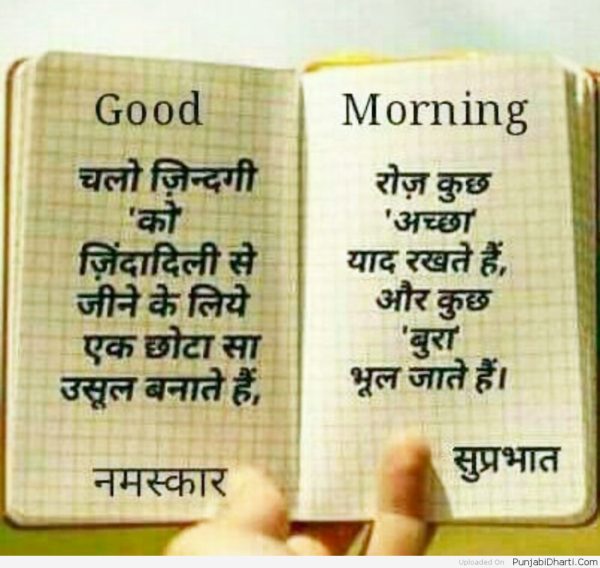 Good
चलो ज़िन्दगी
'को'
ज़िंदादिली से
जीने के लिये
एक छोटा सा
उसूल बनाते हैं,
नमस्कार
Morning
रोज़ कुछ
'अच्छा'
याद रखते हैं,
और कुछ
'बुरा'
भूल जाते हैं।
सुप्रभात
Uploaded On PunjabiDharti.Com